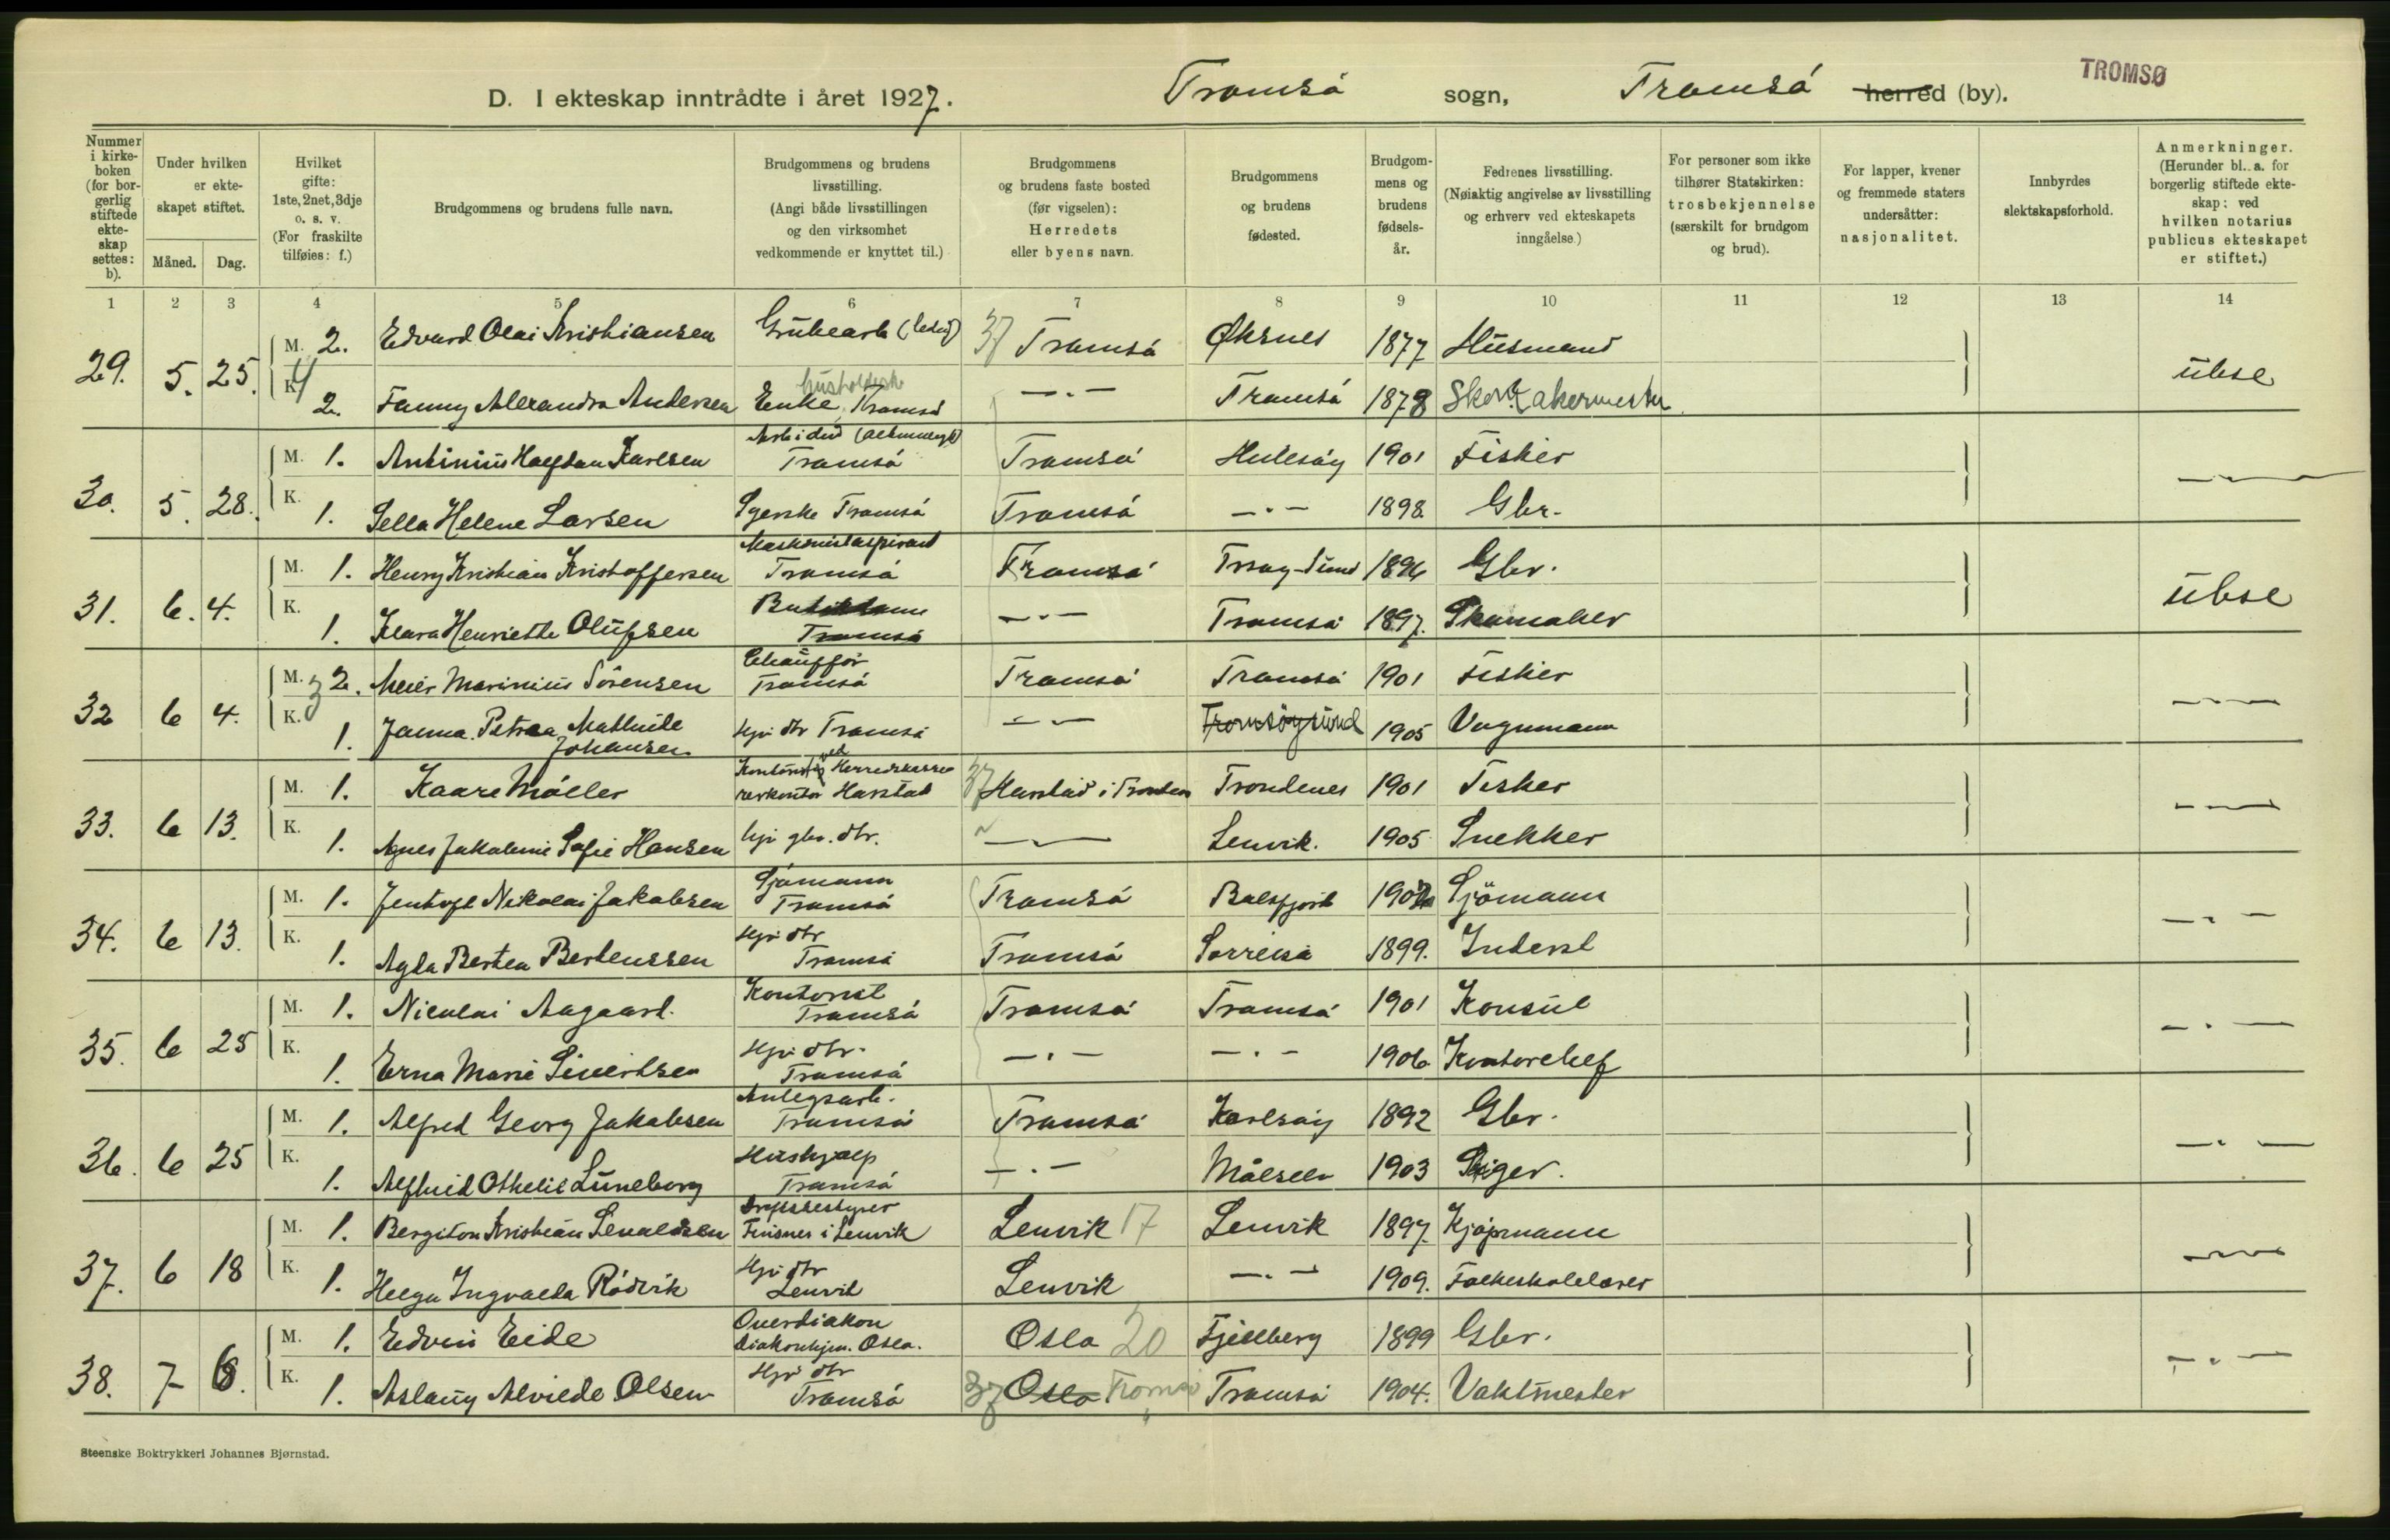 D. I ekteskap inntrådte i året 1927. Tromsö sogn, Tromsö herred (by). TROMSØ
Nummer i kirke- boken (for bor- gerlig stiftede ekte- skap settes: b).
Under hvilken er ekte- skapet stiftet.
Måned. Dag.
Hvilket gifte: 1ste, 2net, 3dje o. s. v. (For fraskilte tilføies: f.)
Brudgommens og brudens fulle navn.
Brudgommens og brudens livsstilling. (Angi både livsstillingen og den virksomhet vedkommende er knyttet til.)
Brudgommens og brudens faste bosted (før vigselen): Herredets eller byens navn.
Brudgommens og brudens fødested.
Brudgom- mens og brudens fødsels- år.
Fedrenes livsstilling. (Nøiaktig angivelse av livsstilling og erhverv ved ekteskapets inngåelse.)
For personer som ikke tilhører Statskirken: trosbekjennelse (særskilt for brudgom og brud).
For lapper, kvener og fremmede staters undersåtter: nasjonalitet.
Innbyrdes slektskapsforhold.
Anmerkninger. (Herunder bl. a. for borgerlig stiftede ekte- skap: ved hvilken notarius publicus ekteskapet er stiftet.)
1 2 3 4 5 6 7 8 9 10 11 12 13 14
29. 5. 25. M. 2. Edvard Olai Kristiansen Grubearb (ledig) 37 Tromsö Øksnes 1877 Husmand
K. 4 2. Fanny Alexandra Andersen Enke Tromsö —.— Tromsö 1878 ubse
30. 5. 28. M. 1. Antinius Halfdan Karlsen Tromsö Tromsö 1901 Fisker
K. 1. Sella Helene Larsen Syerske Tromsö Tromsö —.— 1898. Gbr.
31. 6. 4. M. 1. Henry Kristian Kristoffersen Maskinistaspirant Tromsö Tromsö 1896 Gbr.
K. 1. Klara Henriette Olufsen Tromsö —.— Tromsö 1897. Skomaker ubse
32 6 4. M. 2. Meier Marinius Sörensen Chaufför Tromsö Tromsö Tromsö 1901 Fisker
K. 3 1. Janna Petrea Mathilde Johansen Hj. dtr Tromsö —.— Tromsöysund 1905 Vognmann
33. 6 13. M. 1. Kaare Möller Kontorist ved Herredskasse rerkontor Harstad 37 Harstad i Tronden Trondenes 1901 Fisker
K. 1. Agnes Jakobine Sofie Hansen hj. gbr. dtr. — Lenvik. 1905 Snekker
34. 6 13. M. 1. Jentoft Nikolai Jakobsen Sjömann Tromsö Tromsö Balsfjord Sjömann
K. 1. Agda Bertea Berteussen Hj. dtr Tromsö Tromsö Sörreisa 1899. Inderst
35. 6 25 M. 1. Nicolai Aagaard. Kontorist Tromsö Tromsö Tromsö 1901 Konsul
K. 1. Erna Marie Sivertsen Hj. dtr. Tromsö —.— —.— 1906 Kontorchef
36. 6 25 M. 1. Alfred Georg Jakobsen Anlegsarb. Tromsö Tromsö Karlsöy 1892 Gbr.
K. 1. Alfhild Othelie Luneborg Hushjælp Tromsö —.— Målselv 1903
37. 6 18 M. 1. Bergiton Kristian Lenaldsen Driftsbestyrer Finsnes i Lenvik Lenvik 17 Lenvik 1897. Kjöpmann
K. 1. Helga Ingvalda Rödvik Hj. dtr Lenvik Lenvik —.— 1909. Folkeskolelærer
38. 7 M. 1. Edvin Eide Overdiakon diakonhjem. Oslo. Oslo 20 Fjellberg 1899 Gbr.
K. 1. Aslaug Alvilde Olsen Hj. dtr Tromsö 37 Oslo Tromsö Tromsö 1904. Vaktmester
Steenske Boktrykkeri Johannes Bjørnstad.